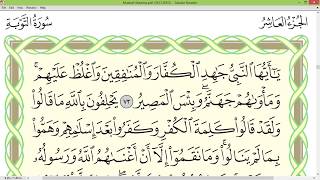 سُورَةُ التَّوْبَةِ
الجُزْءُ العَاشِرُ
يَـٰٓأَيُّهَا ٱلنَّبِىُّ جَـٰهِدِ ٱلْكُفَّارَ وَٱلْمُنَـٰفِقِينَ وَٱغْلُظْ عَلَيْهِمْ ۚ
وَمَأْوَىٰهُمْ جَهَنَّمُ ۖ وَبِئْسَ ٱلْمَصِيرُ ٧٣ يَحْلِفُونَ بِٱللَّهِ مَا قَالُوا۟
وَلَقَدْ قَالُوا۟ كَلِمَةَ ٱلْكُفْرِ وَكَفَرُوا۟ بَعْدَ إِسْلَـٰمِهِمْ وَهَمُّوا۟
بِمَا لَمْ يَنَالُوا۟ ۚ وَمَا نَقَمُوٓا۟ إِلَّآ أَنْ أَغْنَىٰهُمُ ٱللَّهُ وَرَسُولُهُۥ